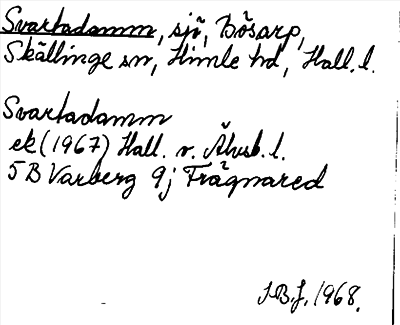 Svartadamm, sjö, Bösarp,
Skällinge sn, Himle hd, Hall. l.
Svartadamm
ek (1967) Hall. v. Älvsb. l.
5 B Varberg 9j Frägnared
I.B.J. 1968.